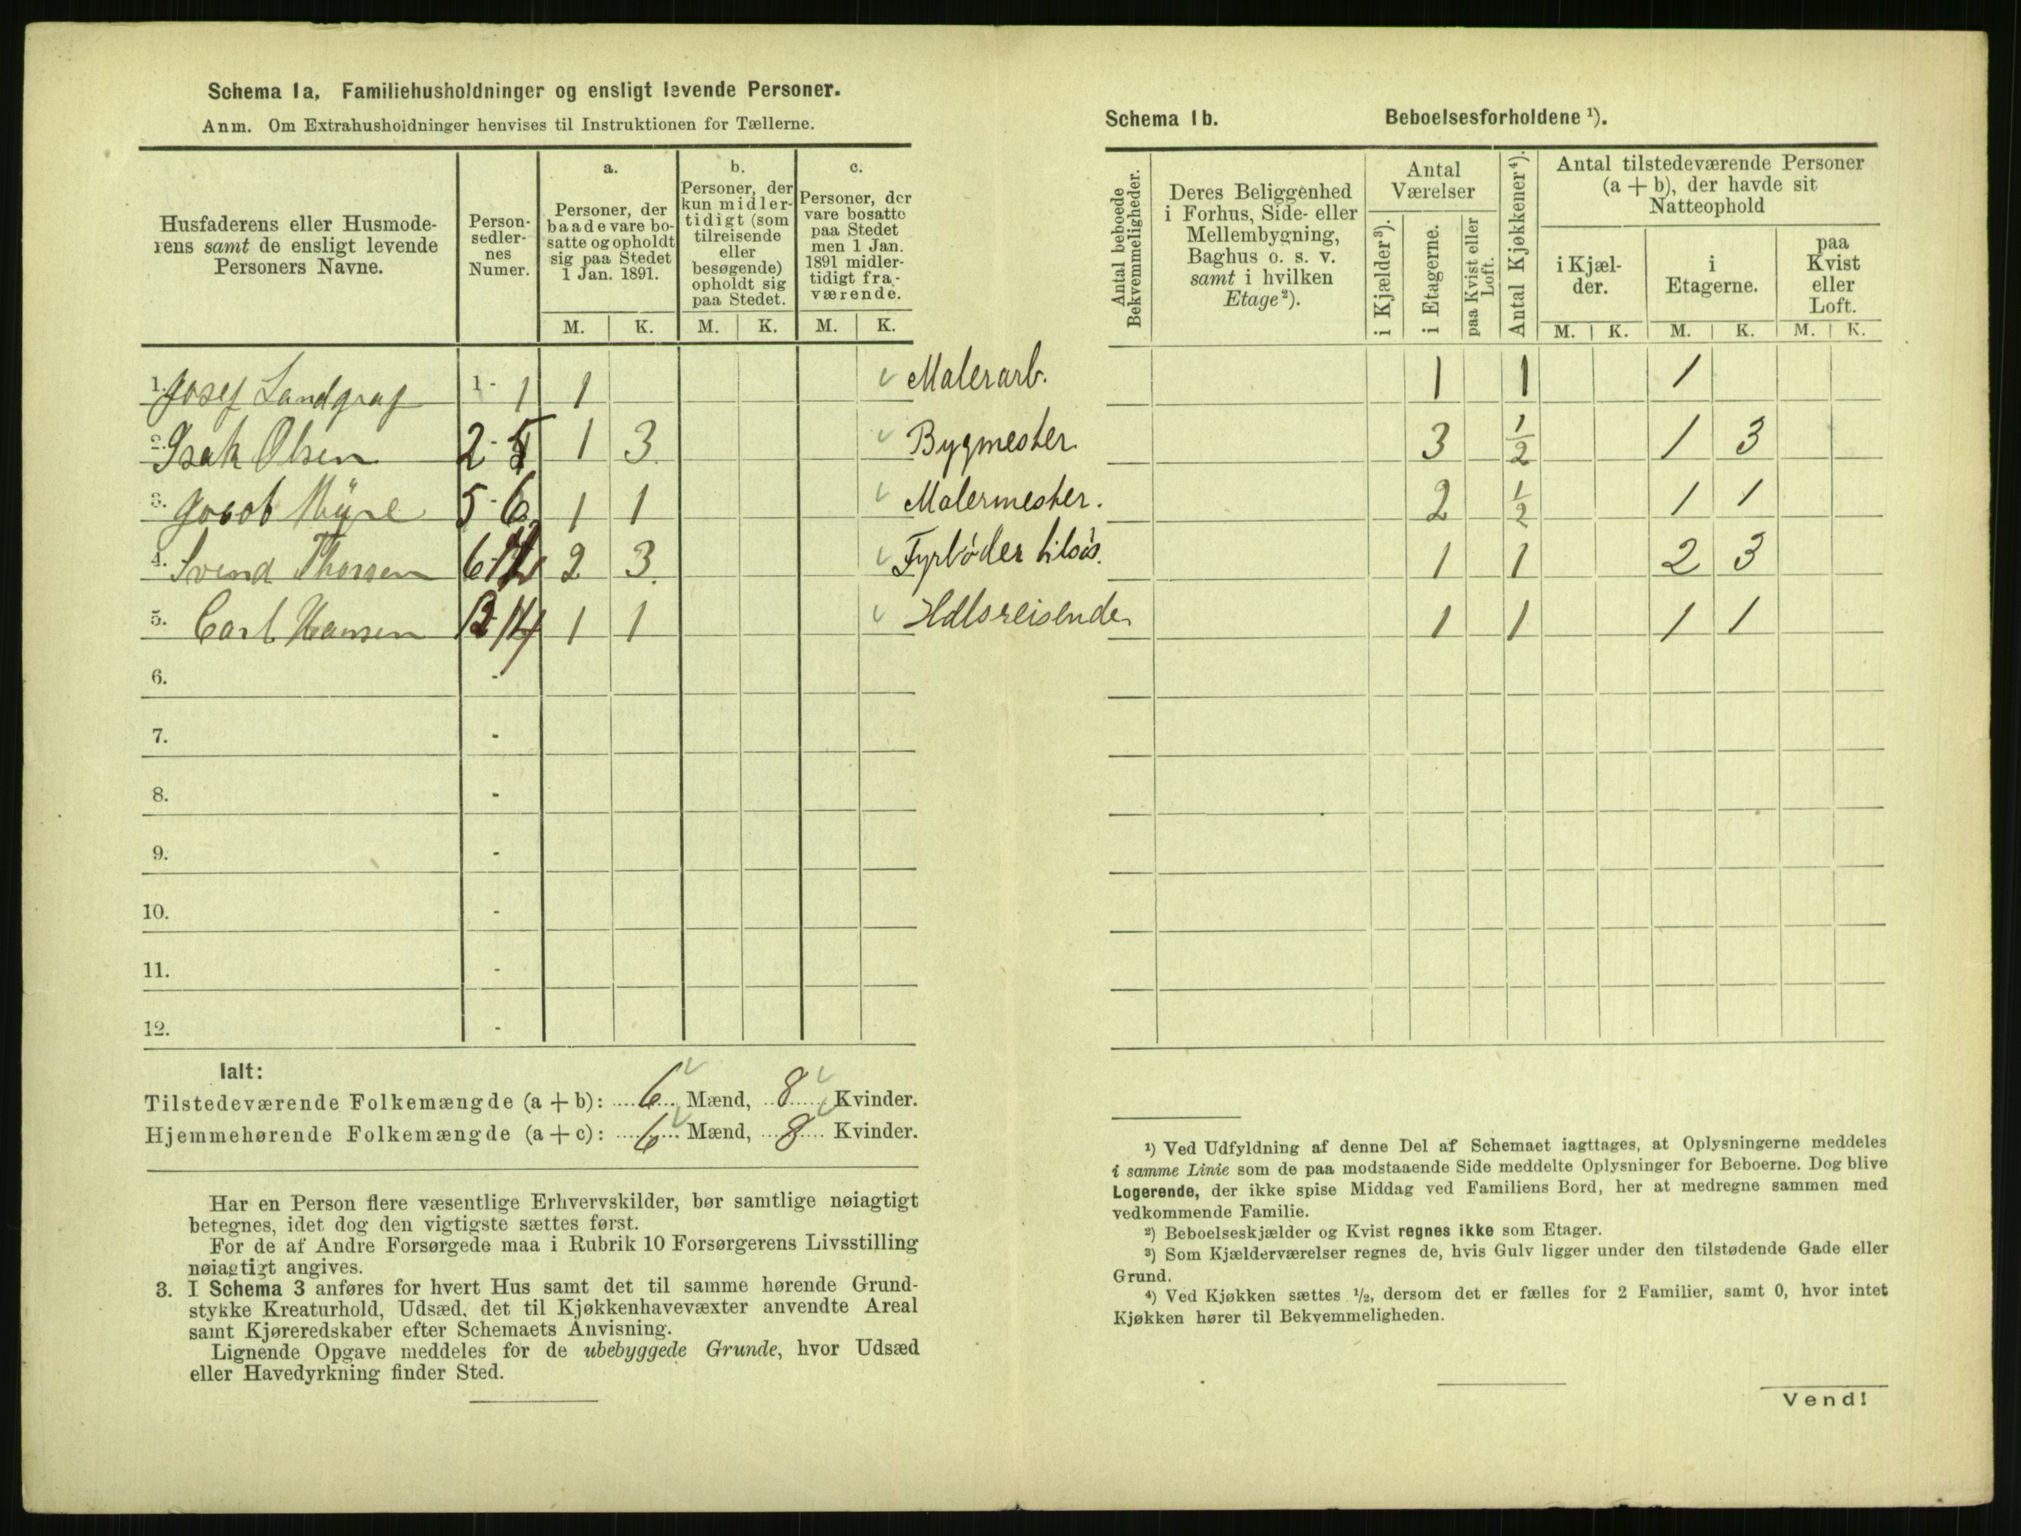 Schema 1a. Familiehusholdninger og ensligt levende Personer.
Anm. Om Extrahusholdninger henvises til Instruktionen for Tællerne.
Husfaderens eller Husmode-
rens samt de ensligt levende
Personers Navne.
Person-
sedler-
nes
Numer.
a.
Personer, der
baade vare bo-
satte og opholdt
sig paa Stedet
1 Jan. 1891.
b.
Personer, der
kun midler-
tidigt (som
tilreisende
eller
besøgende)
opholdt sig
paa Stedet.
c.
Personer, der
vare bosatte
paa Stedet
men 1 Jan.
1891 midler-
tidigt fra-
værende.
M. K. M. K. M. K.
1. Josef Landgraf 1 - 1 1 Malerarb.
2. Isak Olsen 2 - 5 1 3 Bygmester
3. Jacob Myre 5 - 6 1 1 Malermester.
4. Svend Thorsen 6 2 3 Fyrbøder tilsøs.
5. Carl Hansen 14 1 1 Hdlsreisende
6. -
7. -
8. -
9. -
10. -
11. -
12. -
Ialt:
Tilstedeværende Folkemængde (a + b): 6 Mænd, 8 Kvinder.
Hjemmehørende Folkemængde (a + c): 6 Mænd, 8 Kvinder.
Har en Person flere væsentlige Erhvervskilder, bør samtlige nøiagtigt
betegnes, idet dog den vigtigste sættes først.
For de af Andre Forsørgede maa i Rubrik 10 Forsørgerens Livsstilling
nøiagtigt angives.
3. I Schema 3 anføres for hvert Hus samt det til samme hørende Grund-
stykke Kreaturhold, Udsæd, det til Kjøkkenhavevæxter anvendte Areal
samt Kjøreredskaber efter Schemaets Anvisning.
Lignende Opgave meddeles for de ubebyggede Grunde, hvor Udsæd
eller Havedyrkning finder Sted.
Schema 1b. Beboelsesforholdene ¹).
Antal beboede
Bekvemmeligheder.
Deres Beliggenhed
i Forhus, Side- eller
Mellembygning,
Baghus o. s. v.
samt i hvilken
Etage ²).
Antal
Værelser
i Kjælder ³).
i Etagerne.
paa Kvist eller
Loft.
Antal Kjøkkener ⁴).
Antal tilstedeværende Personer
(a + b), der havde sit
Natteophold
i Kjæl-
der.
i
Etagerne.
paa
Kvist
eller
Loft.
M. K. M. K. M. K.
1 1 1
3 ½ 1 3
2 ½ 1 1
1 1 2 3
1 1 1 1
¹) Ved Udfyldning af denne Del af Schemaet iagttages, at Oplysningerne meddeles
i samme Linie som de paa modstaaende Side meddelte Oplysninger for Beboerne. Dog blive
Logerende, der ikke spise Middag ved Familiens Bord, her at medregne sammen med
vedkommende Familie.
²) Beboelseskjælder og Kvist regnes ikke som Etager.
³) Som Kjælderværelser regnes de, hvis Gulv ligger under den tilstødende Gade eller
Grund.
⁴) Ved Kjøkken sættes ½, dersom det er fælles for 2 Familier, samt 0, hvor intet
Kjøkken hører til Bekvemmeligheden.
Vend!